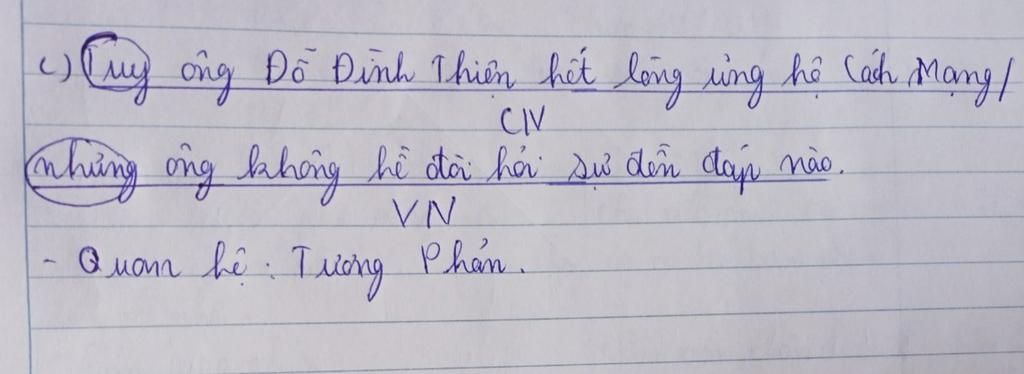 c) Tuy ông Đỗ Đình Thiện hết lòng ủng hộ Cách Mạng /
CN
nhưng ông không hề đòi hỏi sự đền đáp nào.
VN
- Quan hệ: Tương Phản.